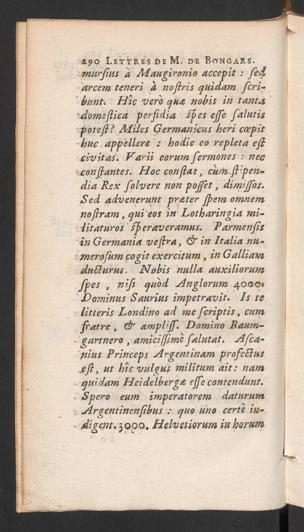 290 LETTRES DE M. DE BONGARS.
mursius à Maugironio accepit : sed
arcem teneri à nostris quidam scri-
bunt. Hîc verò quæ nobis in tanta
domestica perfidia spes esse salutis
potest? Miles Germanicus heri cœpit
huc appellere : hodie eo repleta est
civitas. Varii eorum sermones : nec
constantes. Hoc constat, cùm stipen-
dia Rex solvere non posset, dimissos.
Sed advenerunt præter spem omnem
nostram, qui eos in Lotharingia mi-
litaturos speraveramus. Parmensis
in Germania vestra, & in Italia nu-
merosum cogit exercitum, in Galliam
ducturus. Nobis nulla auxiliorum
spes, nisi quòd Anglorum 4000.
Dominus Saurius impetravit. Is te
litteris Londino ad me scriptis, cum
fratre, & ampliss. Domino Baum-
gartnero, amicissimè salutat. Asca-
nius Princeps Argentinam profectus
est, ut hîc vulgus militum ait: nam
quidam Heidelbergæ esse contendunt.
Spero eum imperatorem daturum
Argentinensibus : quo uno certè in-
digent. 3000. Helvetiorum in horum